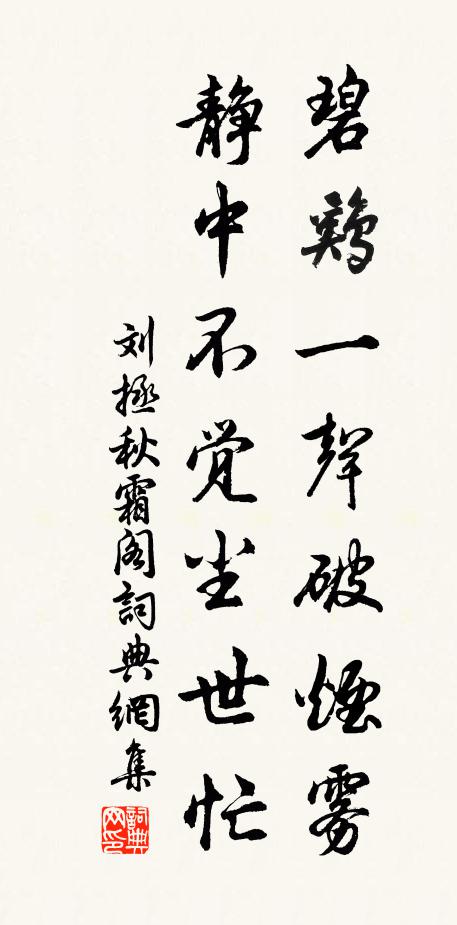 碧鷄一聲破煙雾
静中不觉尘世忙
刘拯秋霜阁詞典網集
詞典网印